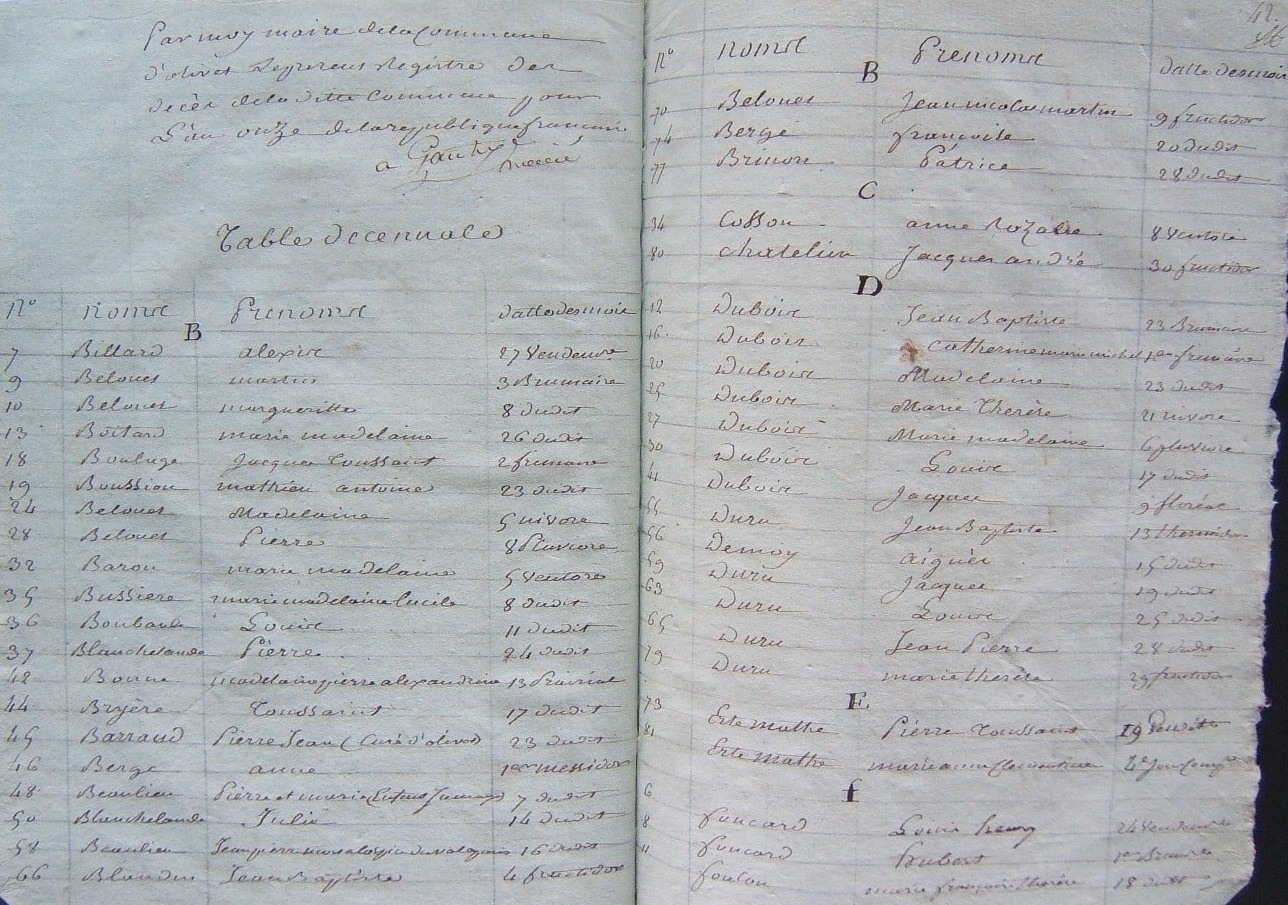 Par moy maire de la Commune
d'olivet le present Registre des
décès de la ditte Commune pour
L'an onze de la republique française
Table decennale
N° noms Prenoms datte des mois
B
7 Billard alexis 27 Vendemre
9 Belouet martin 3 Brumaire
10 Belouet margueritte 8 dudit
13 Boitard marie madelaine 26 dudit
18 Bouluge Jacques Toussaint 2 frimaire
19 Boussion mathieu antoine 23 dudit
24 Belouet Madelaine 5 nivose
28 Belouet Pierre 8 Pluviose
32 Barou marie madelaine 5 Ventose
35 Bussiere marie madelaine lucile 8 dudit
36 Boubault Louise 11 dudit
37 Blanchelande Pierre 24 dudit
42 Bonne madelaine pierre alexandrine 13 Prairial
44 Bryère Toussaint 17 dudit
45 Barraud Pierre Jean (Curé d'olivet) 23 dudit
46 Berge anne 1er messidor
48 Beaulieu Pierre et marie 7 dudit
50 Blanchelande Julie 14 dudit
58 Beaulieu 16 dudit
66 Blandin Jean Baptiste 4 fructidor
42
N° noms Prenoms datte des mois
B
70 Belouet Jean nicolas martin 9 fructidor
74 Bergé françoise 20 dudit
77 Brinon Patrice 28 dudit
C
34 Cosson anne Rozalie 8 Ventose
80 chatelin Jacques andré 30 fructidor
D
12 Dubois Jean Baptiste 23 Brumaire
16 Dubois Catherine marie michel 1er frimaire
20 Dubois Madelaine 23 dudit
25 Dubois Marie Therèse 21 nivose
27 Dubois Marie madelaine 6 pluviose
30 Dubois Louise 17 dudit
41 Dubois Jacques 9 floréal
55 Duru Jean Baptiste 13 thermidor
56 Demoy aignès 15 dudit
59 Duru Jacques 19 dudit
63 Duru Louise 25 dudit
65 Duru Jean Pierre 28 dudit
79 Duru marie therèse 29 fructidor
E
73 Este mathe Pierre Toussaint 19
81 Este mathe marie anne Clementine 4e Jour Compre
f
6 foucard Louis henry 24 Vendemre
8 foucard hubert 1er Brumre
11 foulon marie françoise therèse 18 dudit